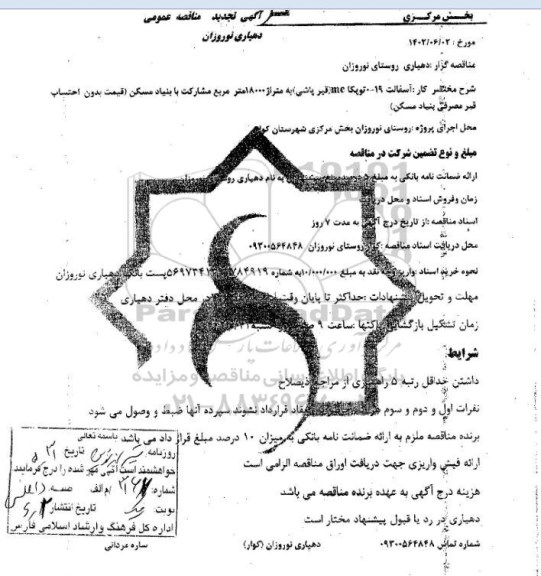 بخش مرکزی
آگهی تجدید مناقصه عمومی
دهیاری نوروزان
مورخ : ۱۴۰۲/۰۶/۰۲
مناقصه گزار :دهیاری روستای نوروزان
شرح مختصر کار :آسفالت ۱۹-۰۰توپکا mc(قیر پاشی)به متراژ۱۸۰۰۰متر مربع مشارکت با بنیاد مسکن (قیمت بدون احتساب
قیر مصرفی بنیاد مسکن)
محل اجرای پروژه :روستای نوروزان بخش مرکزی شهرستان کوار
مبلغ و نوع تضمین شرکت در مناقصه
ارائه ضمانت نامه بانکی به مبلغ به نام دهیاری
زمان وفروش اسناد و محل
اسناد مناقصه :از تاریخ درج آگهی به مدت ۷ روز
محل دریافت اسناد مناقصه :کوار روستای نوروزان ۰۹۳۰۰۵۶۴۸۴۸
نحوه خرید اسناد :واریز وجه نقد به مبلغ ۱۰/۰۰۰/۰۰۰به شماره پست بانک دهیاری نوروزان
مهلت و تحویل پیشنهادات :حداکثر تا پایان وقت در محل دفتر دهیاری
زمان تشکیل بازگشایی پاکتها :ساعت ۹
شرایط
داشتن حداقل رتبه ۵ راه از مراجع ذیصلاح
نفرات اول و دوم و سوم قرارداد نشوند سپرده آنها ضبط و وصول می شود
برنده مناقصه ملزم به ارائه ضمانت نامه بانکی به میزان ۱۰ درصد مبلغ قرار داد می باشد
ارائه فیش واریزی جهت دریافت اوراق مناقصه الزامی است
هزینه درج آگهی به عهده برنده مناقصه می باشد
دهیاری در رد یا قبول پیشنهاد مختار است
شماره تماس ۰۹۳۰۰۵۶۴۸۴۸
دهیاری نوروزان (کوار)
باسمه تعالی
روزنامه تاریخ
خواهشمند است آگهی مهر شده را درج فرمایند
شماره: م/الف
نوبت: تاریخ انتشار
اداره کل فرهنگ وارشاد اسلامی فارس
ساره مردانی
ParsNamadData
۰۲۱-۸۸۳۴۹۶۷۰